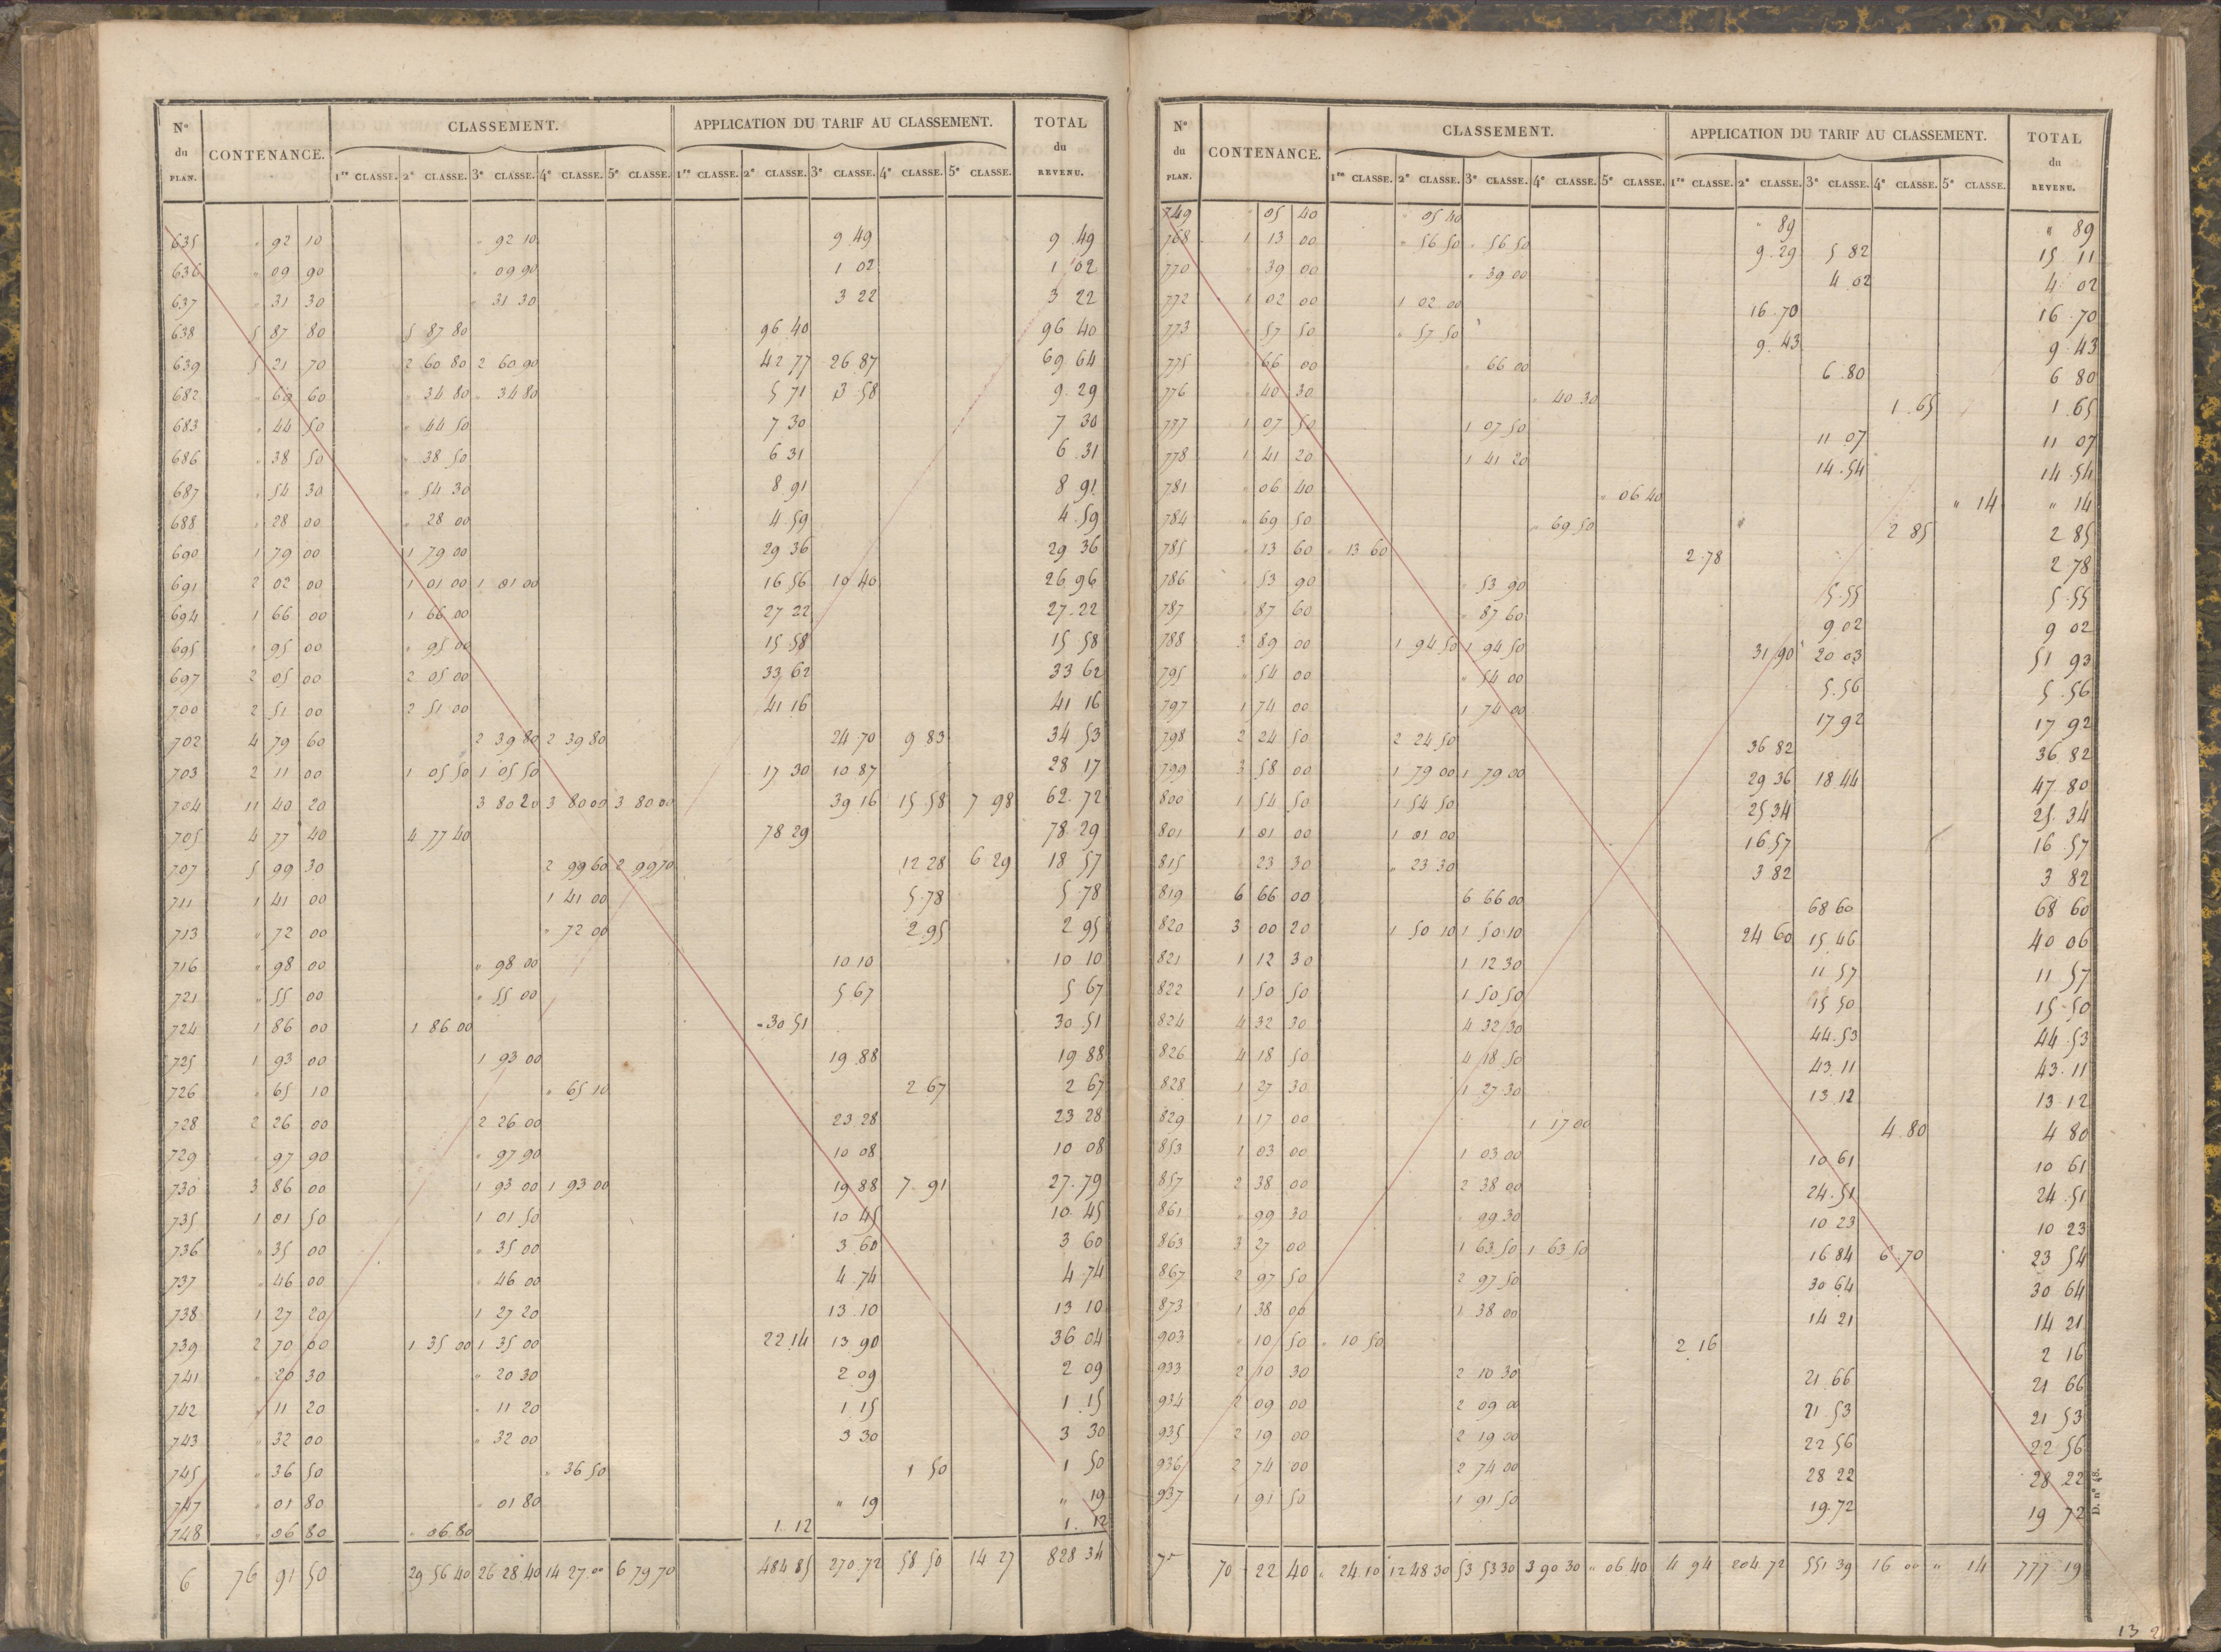 N° du PLAN. CONTENANCE. CLASSEMENT. APPLICATION DU TARIF AU CLASSEMENT. TOTAL du REVENU.
1re CLASSE. 2e CLASSE. 3e CLASSE. 4e CLASSE. 5e CLASSE. 1re CLASSE. 2e CLASSE. 3e CLASSE. 4e CLASSE. 5e CLASSE.
635 " 92 10 " 92 10 9 49 9 49
636 " 09 90 " 09 90 1 02 1 02
637 " 31 30 " 31 30 3 22 3 22
638 5 87 80 5 87 80 96 40 96 40
639 5 21 70 2 60 80 2 60 90 42 77 26 87 69 64
682 " 69 60 " 34 80 " 34 80 5 71 3 58 9 29
683 " 44 50 " 44 50 7 30 7 30
686 " 38 50 " 38 50 6 31 6 31
687 " 54 30 " 54 30 8 91 8 91
688 " 28 00 " 28 00 4 59 4 59
690 1 79 00 1 79 00 29 36 29 36
691 2 02 00 1 01 00 1 01 00 16 56 10 40 26 96
694 1 66 00 1 66 00 27 22 27 22
695 " 95 00 " 95 00 15 58 15 58
697 2 05 00 2 05 00 33 62 33 62
700 2 51 00 2 51 00 41 16 41 16
702 4 79 60 2 39 80 2 39 80 24 70 9 83 34 53
703 2 11 00 1 05 50 1 05 50 17 30 10 87 28 17
704 11 40 20 3 80 20 3 80 00 3 80 00 39 16 15 58 7 98 62 72
705 4 77 40 4 77 40 78 29 78 29
707 5 99 30 2 99 60 2 99 70 12 28 6 29 18 57
711 1 41 00 1 41 00 5 78 5 78
713 " 72 00 " 72 00 2 95 2 95
716 " 98 00 " 98 00 10 10 10 10
721 " 55 00 " 55 00 5 67 5 67
724 1 86 00 1 86 00 30 51 30 51
725 1 93 00 1 93 00 19 88 19 88
726 " 65 10 " 65 10 2 67 2 67
728 2 26 00 2 26 00 23 28 23 28
729 " 97 90 " 97 90 10 08 10 08
730 3 86 00 1 93 00 1 93 00 19 88 7 91 27 79
735 1 01 50 1 01 50 10 45 10 45
736 " 35 00 " 35 00 3 60 3 60
737 " 46 00 " 46 00 4 74 4 74
738 1 27 20 1 27 20 13 10 13 10
739 2 70 00 1 35 00 1 35 00 22 14 13 90 36 04
741 " 20 30 " 20 30 2 09 2 09
742 " 11 20 " 11 20 1 15 1 15
743 " 32 00 " 32 00 3 30 3 30
745 " 36 50 " 36 50 1 50 1 50
747 " 01 80 " 01 80 " 19 " 19
748 " 06 80 " 06 80 1 12 1 12
6 76 91 50 29 56 40 26 28 40 14 27 00 6 79 70 484 85 270 72 58 50 14 27 828 34
N° du PLAN. CONTENANCE. CLASSEMENT. APPLICATION DU TARIF AU CLASSEMENT. TOTAL du REVENU.
1re CLASSE. 2e CLASSE. 3e CLASSE. 4e CLASSE. 5e CLASSE. 1re CLASSE. 2e CLASSE. 3e CLASSE. 4e CLASSE. 5e CLASSE.
749 " 05 40 " 05 40 " 89 " 89
768 1 13 00 " 56 50 " 56 50 9 29 5 82 15 11
770 " 39 00 " 39 00 4 02 4 02
772 1 02 00 1 02 00 16 70 16 70
773 " 57 50 " 57 50 9 43 9 43
775 " 66 00 " 66 00 6 80 6 80
776 " 40 30 " 40 30 1 65 1 65
777 1 07 50 1 07 50 11 07 11 07
778 1 41 20 1 41 20 14 54 14 54
781 " 06 40 " 06 40 " 14 " 14
784 " 69 50 " 69 50 2 85 2 85
785 " 13 60 " 13 60 2 78 2 78
786 " 53 90 " 53 90 5 55 5 55
787 " 87 60 " 87 60 9 02 9 02
788 3 89 00 1 94 50 1 94 50 31 90 20 03 51 93
795 " 54 00 " 54 00 5 56 5 56
797 1 74 00 1 74 00 17 92 17 92
798 2 24 50 2 24 50 36 82 36 82
799 3 58 00 1 79 00 1 79 00 29 36 18 44 47 80
800 1 54 50 1 54 50 25 34 25 34
801 1 01 00 1 01 00 16 57 16 57
815 " 23 30 " 23 30 3 82 3 82
819 6 66 00 6 66 00 68 60 68 60
820 3 00 20 1 50 10 1 50 10 24 60 15 46 40 06
821 1 12 30 1 12 30 11 57 11 57
822 1 50 50 1 50 50 15 50 15 50
824 4 32 30 4 32 30 44 53 44 53
826 4 18 50 4 18 50 43 11 43 11
828 1 27 30 1 27 30 13 12 13 12
829 1 17 00 1 17 00 4 80 4 80
853 1 03 00 1 03 00 10 61 10 61
857 2 38 00 2 38 00 24 51 24 51
861 " 99 30 " 99 30 10 23 10 23
863 3 27 00 1 63 50 1 63 50 16 84 6 70 23 54
867 2 97 50 2 97 50 30 64 30 64
873 1 38 00 1 38 00 14 21 14 21
903 " 10 50 " 10 50 2 16 2 16
933 2 10 30 2 10 30 21 66 21 66
934 2 09 00 2 09 00 21 53 21 53
935 2 19 00 2 19 00 22 56 22 56
936 2 74 00 2 74 00 28 22 28 22
937 1 91 50 1 91 50 19 72 19 72
7 70 22 40 " 24 10 12 48 30 53 53 30 3 90 30 " 06 40 4 94 204 72 551 39 16 00 " 14 777 19
D. n° 48.
13 2